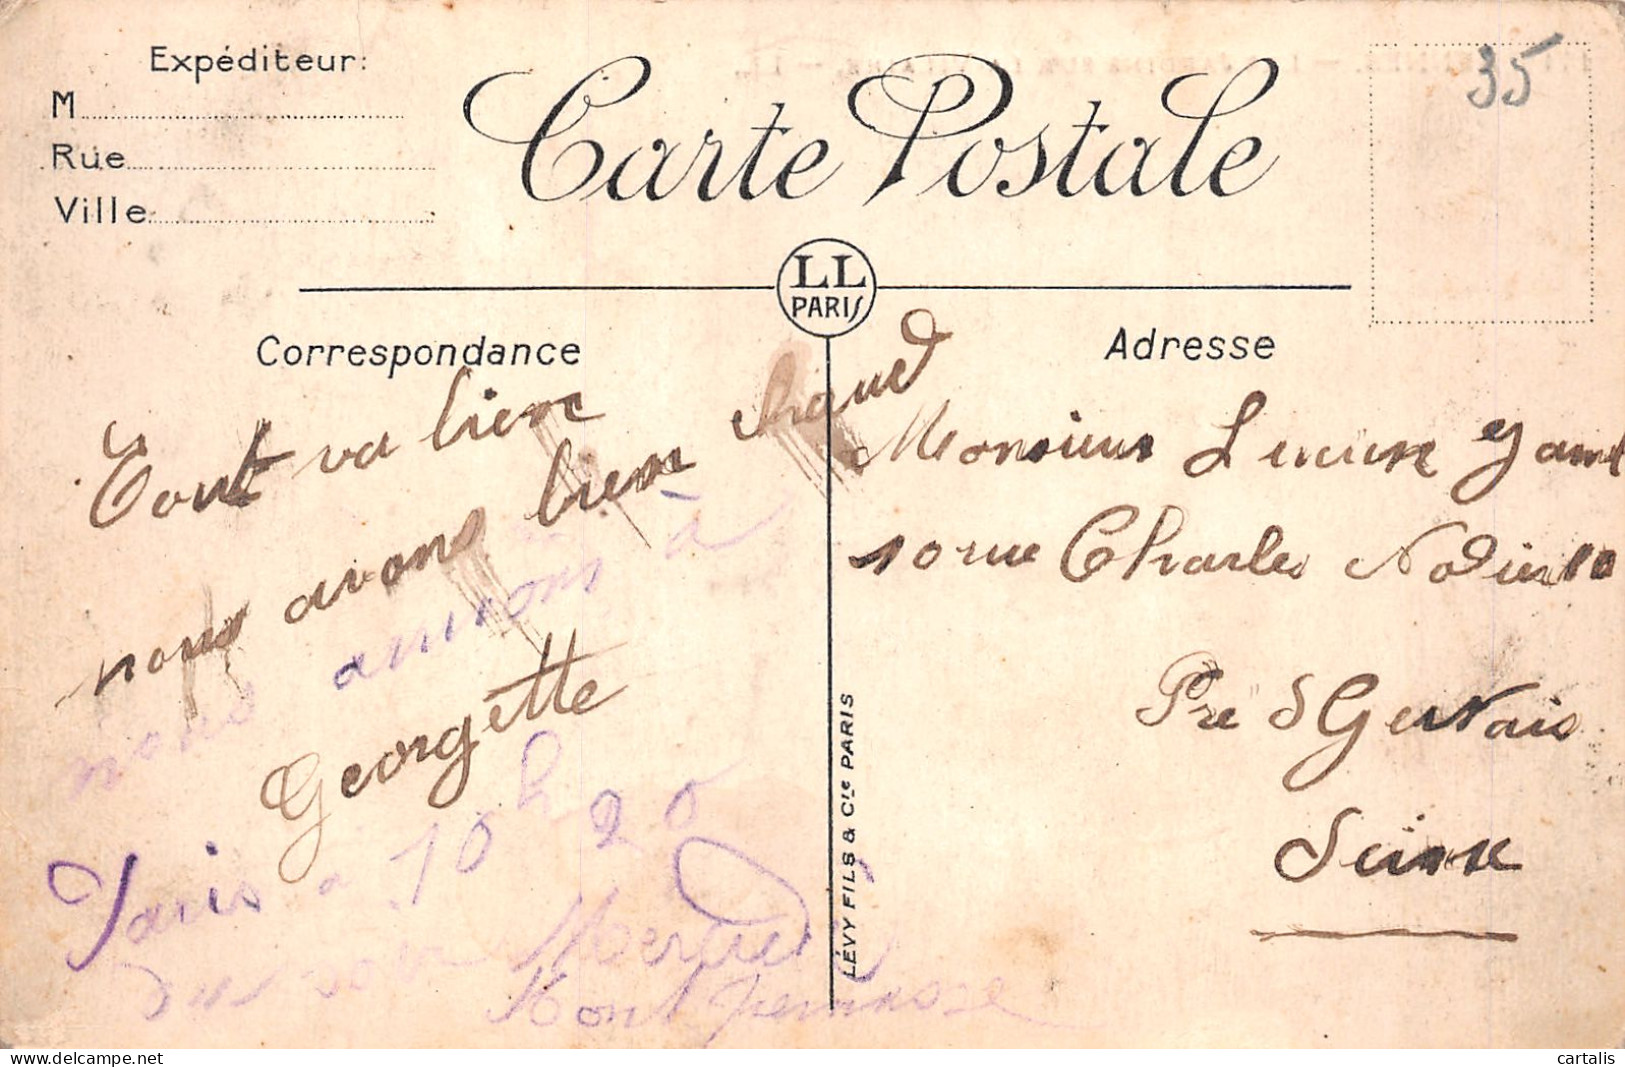 Expéditeur:
M
Rue
Ville
Carte Postale
35
LL
PARIS
Correspondance
Adresse
Tout va bien
nous avons bien chaud
Georgette
nous arrivons à
Paris a 10h20
du soir Mercredi
Mont
Monsieur Lucien
10 rue Charles Nodier 10
Pré St Gervais
Seine
LÉVY FILS & Cie PARIS
cartalis